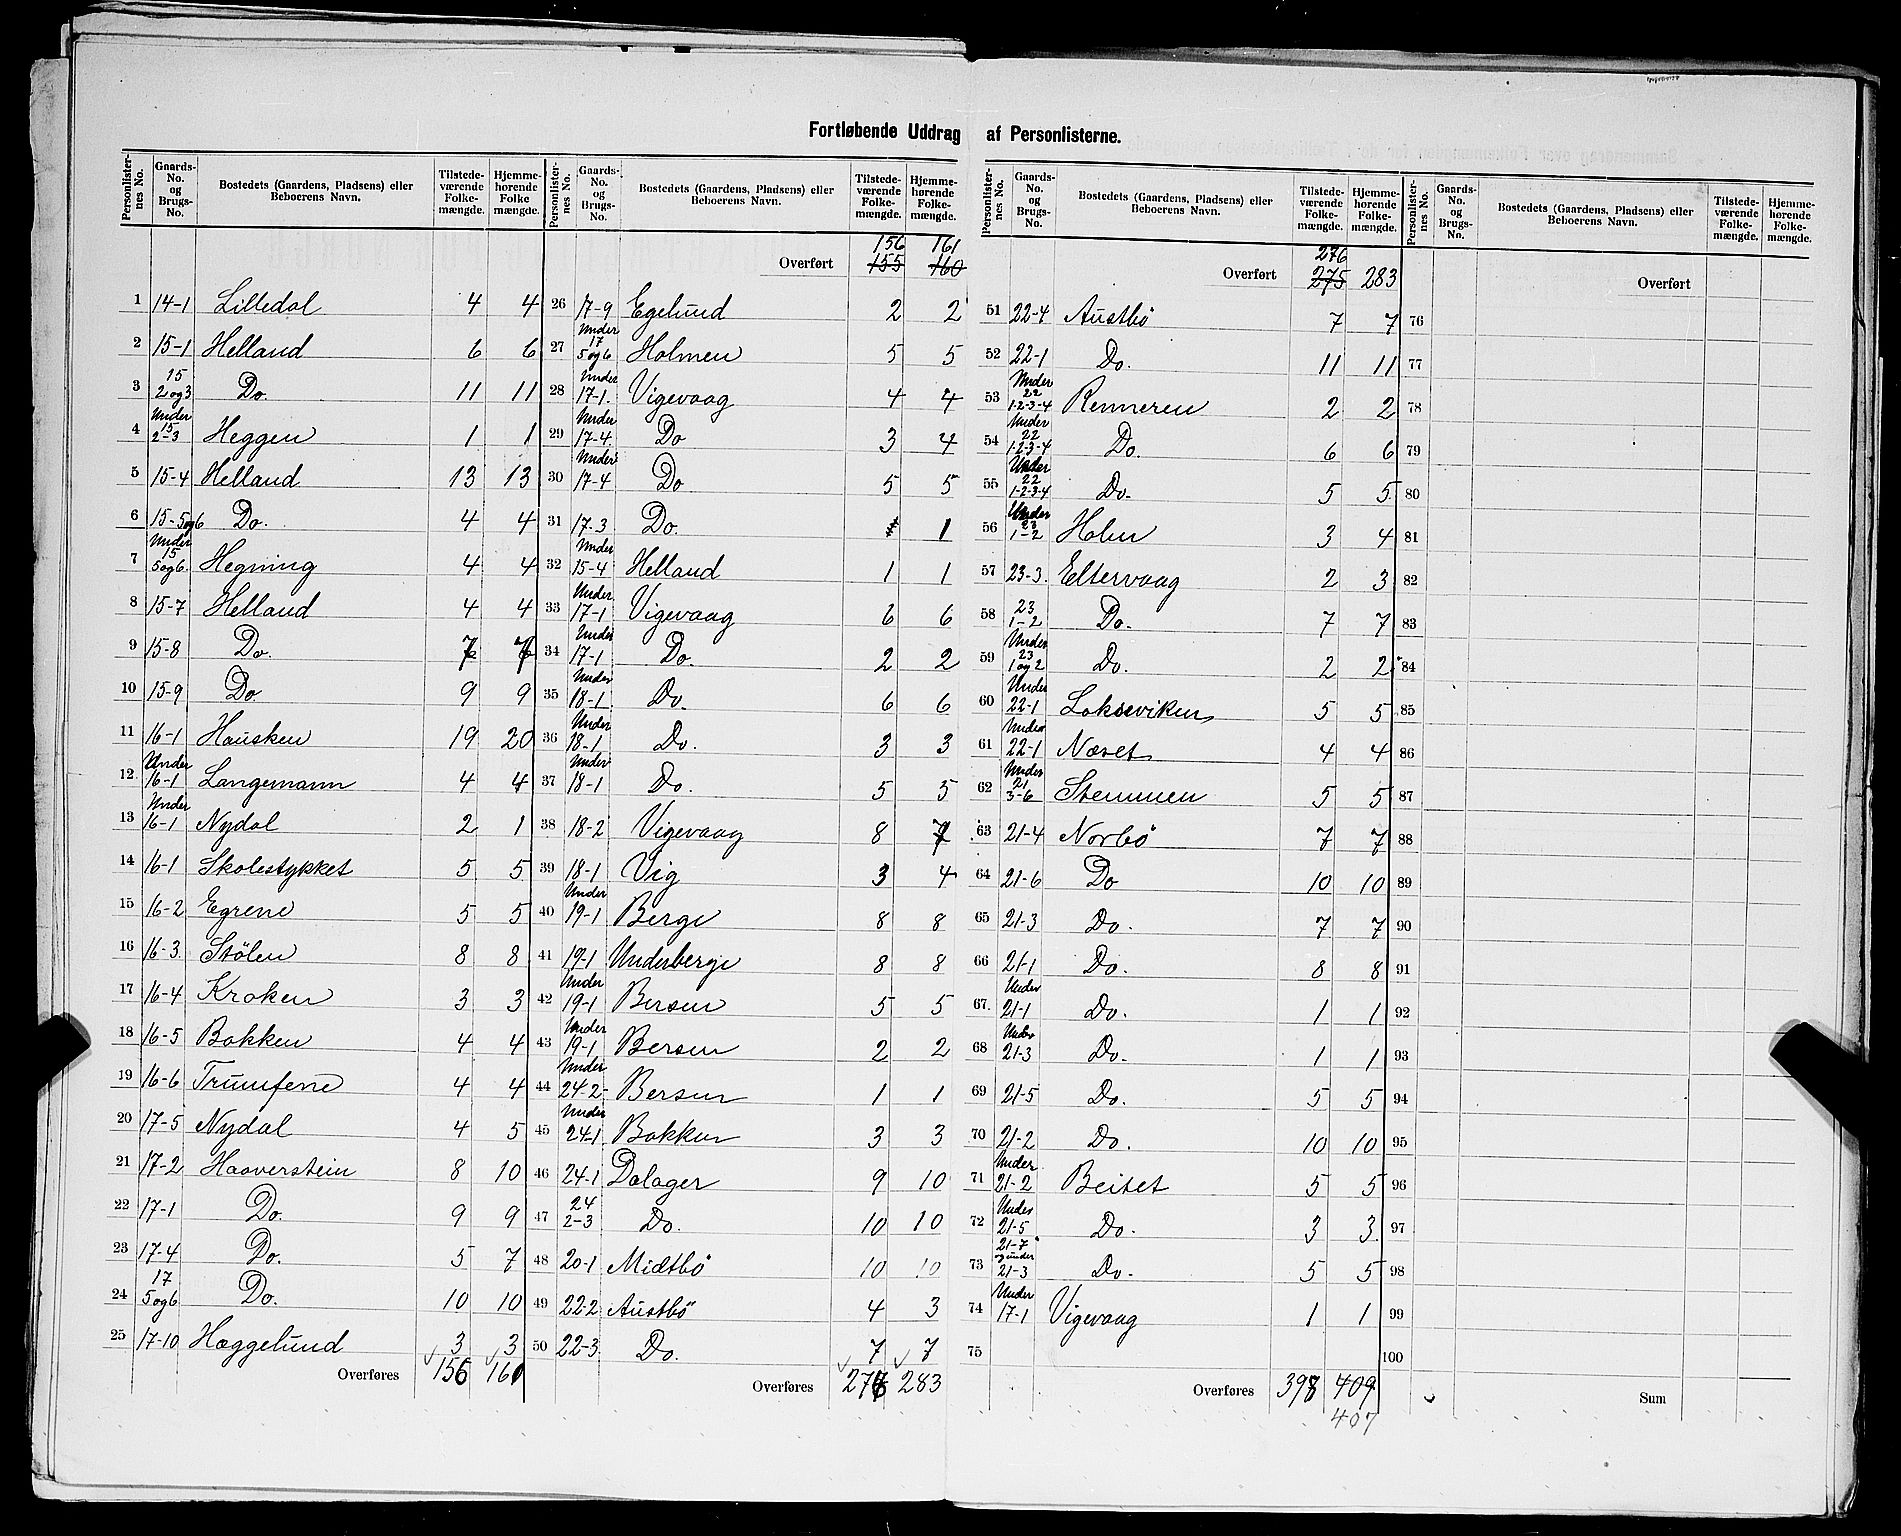 Fortløbende Uddrag af Personlisterne.
Personlister-nes No. | Gaards-No. og Brugs-No. | Bostedets (Gaardens, Pladsens) eller Beboerens Navn. | Tilstede-værende Folke-mængde. | Hjemme-hørende Folke mængde.
1 14-1 Lilledal 4 4
2 15-1 Helland 6 6
3 15 2og3 Do. 11 11
4 Under 15 2-3 Heggen 1 1
5 15-4 Helland 13 13
6 15-5og6 Do. 4 4
7 Under 15 5og6. Hegning 4 4
8 15-7 Helland 4 4
9 15-8 Do. 7 7
10 15-9 Do. 9 9
11 16-1 Hausken 19 20
12 Under 16-1 Langemann 4 4
13 Under 16-1 Nydal 2 1
14 16-1 Skolestykket 5 5
15 16-2 Egrene 5 5
16 16-3. Stølen 8 8
17 16-4 Kroken 3 3
18 16-5 Bakken 4 4
19 16-6 Trumfene 4 4
20 17-5 Nydal 4 5
21 17-2 Haaverstein 8 10
22 17-1 Do. 9 9
23 17-4 Do. 5 7
24 17 5og6 Do. 10 10
25 17-10 Hæggelund 3 3
Overføres 156 161
Personlister-nes No. | Gaards-No. og Brugs-No. | Bostedets (Gaardens, Pladsens) eller Beboerens Navn. | Tilstede-værende Folke-mængde. | Hjemme-hørende Folke-mængde.
156 161
Overført 155 160
26 17-9 Egelund 2 2
27 Under 17 5og6 Holmen 5 5
28 Under 17-1. Vigevaag 4 4
29 Under 17-4. Do 3 4
30 Under 17-4 Do 5 5
31 17-3 Do. 1
32 Under 15-4 Helland 1 1
33 Under 17-1 Vigevaag 6 6
34 Under 17-1 Do. 2 2
35 Under 18-1 Do. 6 6
36 Under 18-1 Do. 3 3
37 Under 18-1 Do. 5 5
38 18-2 Vigevaag 8 7
39 18-1 Vig 3 4
40 Under 19-1 Berge 8 8
41 19-1 Underberge 8 8
42 Under 19-1 Bersen 5 5
43 Under 19-1 Bersen 2 2
44 Under 24-2- Bersen 1 1
45 Under 24-1 Bakken 3 3
46 24-1 Dalager 9 10
47 24 2-3 Do. 10 10
48 20-1 Midtbø 10 10
49 22-2 Austbø 4 3
50 22-3. Do. 7 7
Overføres 276 283
Personlister-nes No. | Gaards-No. og Brugs-No. | Bostedets (Gaardens, Pladsens) eller Beboerens Navn. | Tilstede-værende Folke-mængde. | Hjemme-hørende Folke-mængde.
276
Overført 275 283
51 22-4 Austbø 7 7
52 22-1 Do. 11 11
53 Under 22 1-2-3-4 Renneren 2 2
54 Under 22 1-2-3-4 Do. 6 6
55 Under 22 1-2-3-4 Do. 5 5
56 Under 23 1-2 Holen 3 4
57 23-3. Eltervaag 2 3
58 23 1-2 Do. 7 7
59 Under 23 1og2 Do. 2 2
60 Under 22-1 Lokseviken 5 5
61 Under 22-1 Næset 4 4
62 Under 21 3-6 Stemmen 5 5
63 21-4 Norbø 7 7
64 21-6 Do 10 10
65 21-3 Do. 7 7
66 21-1 Do. 8 8
67. Under 21-1 Do. 1 1
68 Under 21-3 Do. 1 1
69 21-5 Do. 5 5
70 21-2 Do. 10 10
71 Under 21-2 Beitet 5 5
72 Under 21-5 Do. 3 3
73 21-7 og under 21-3 Do. 5 5
74 Under 17-1 Vigevaag 1 1
75
Overføres 398 409
407
Personlister-nes No. | Gaards-No. og Brugs-No. | Bostedets (Gaardens, Pladsens) eller Beboerens Navn. | Tilstede-værende Folke-mængde. | Hjemme-hørende Folke-mængde.
Overført
76
77
78
79
80
81
82
83
84
85
86
87
88
89
90
91
92
93
94
95
96
97
98
99
100
Sum